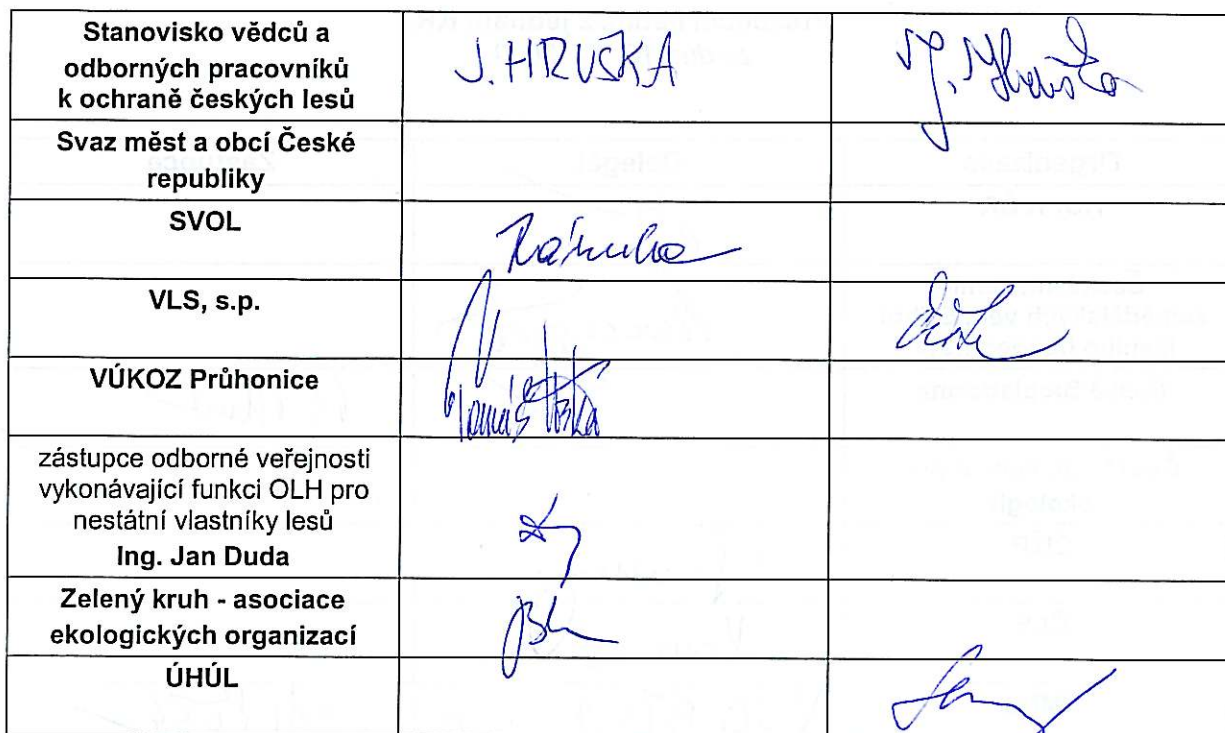 Stanovisko vědců a
odborných pracovníků
k ochraně českých lesů
J. HRUŠKA
J. Hruška
Svaz měst a obcí České
republiky
SVOL
VLS, s.p.
VÚKOZ Průhonice
Tomáš
zástupce odborné veřejnosti
vykonávající funkci OLH pro
nestátní vlastníky lesů
Ing. Jan Duda
Zelený kruh - asociace
ekologických organizací
ÚHÚL